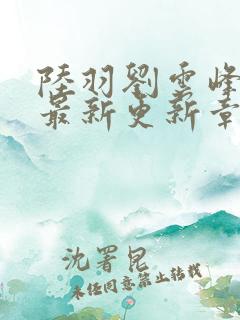 陸羽劉雲峰
最新更新章
沈署昆
未经同意禁止转载